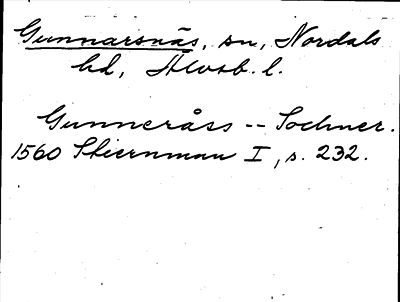 Gunnarsnäs, sn, Nordals
hd, Älvsb. l.
Gunneråss -- Sochner.
1560 Stiernman I, s. 232.